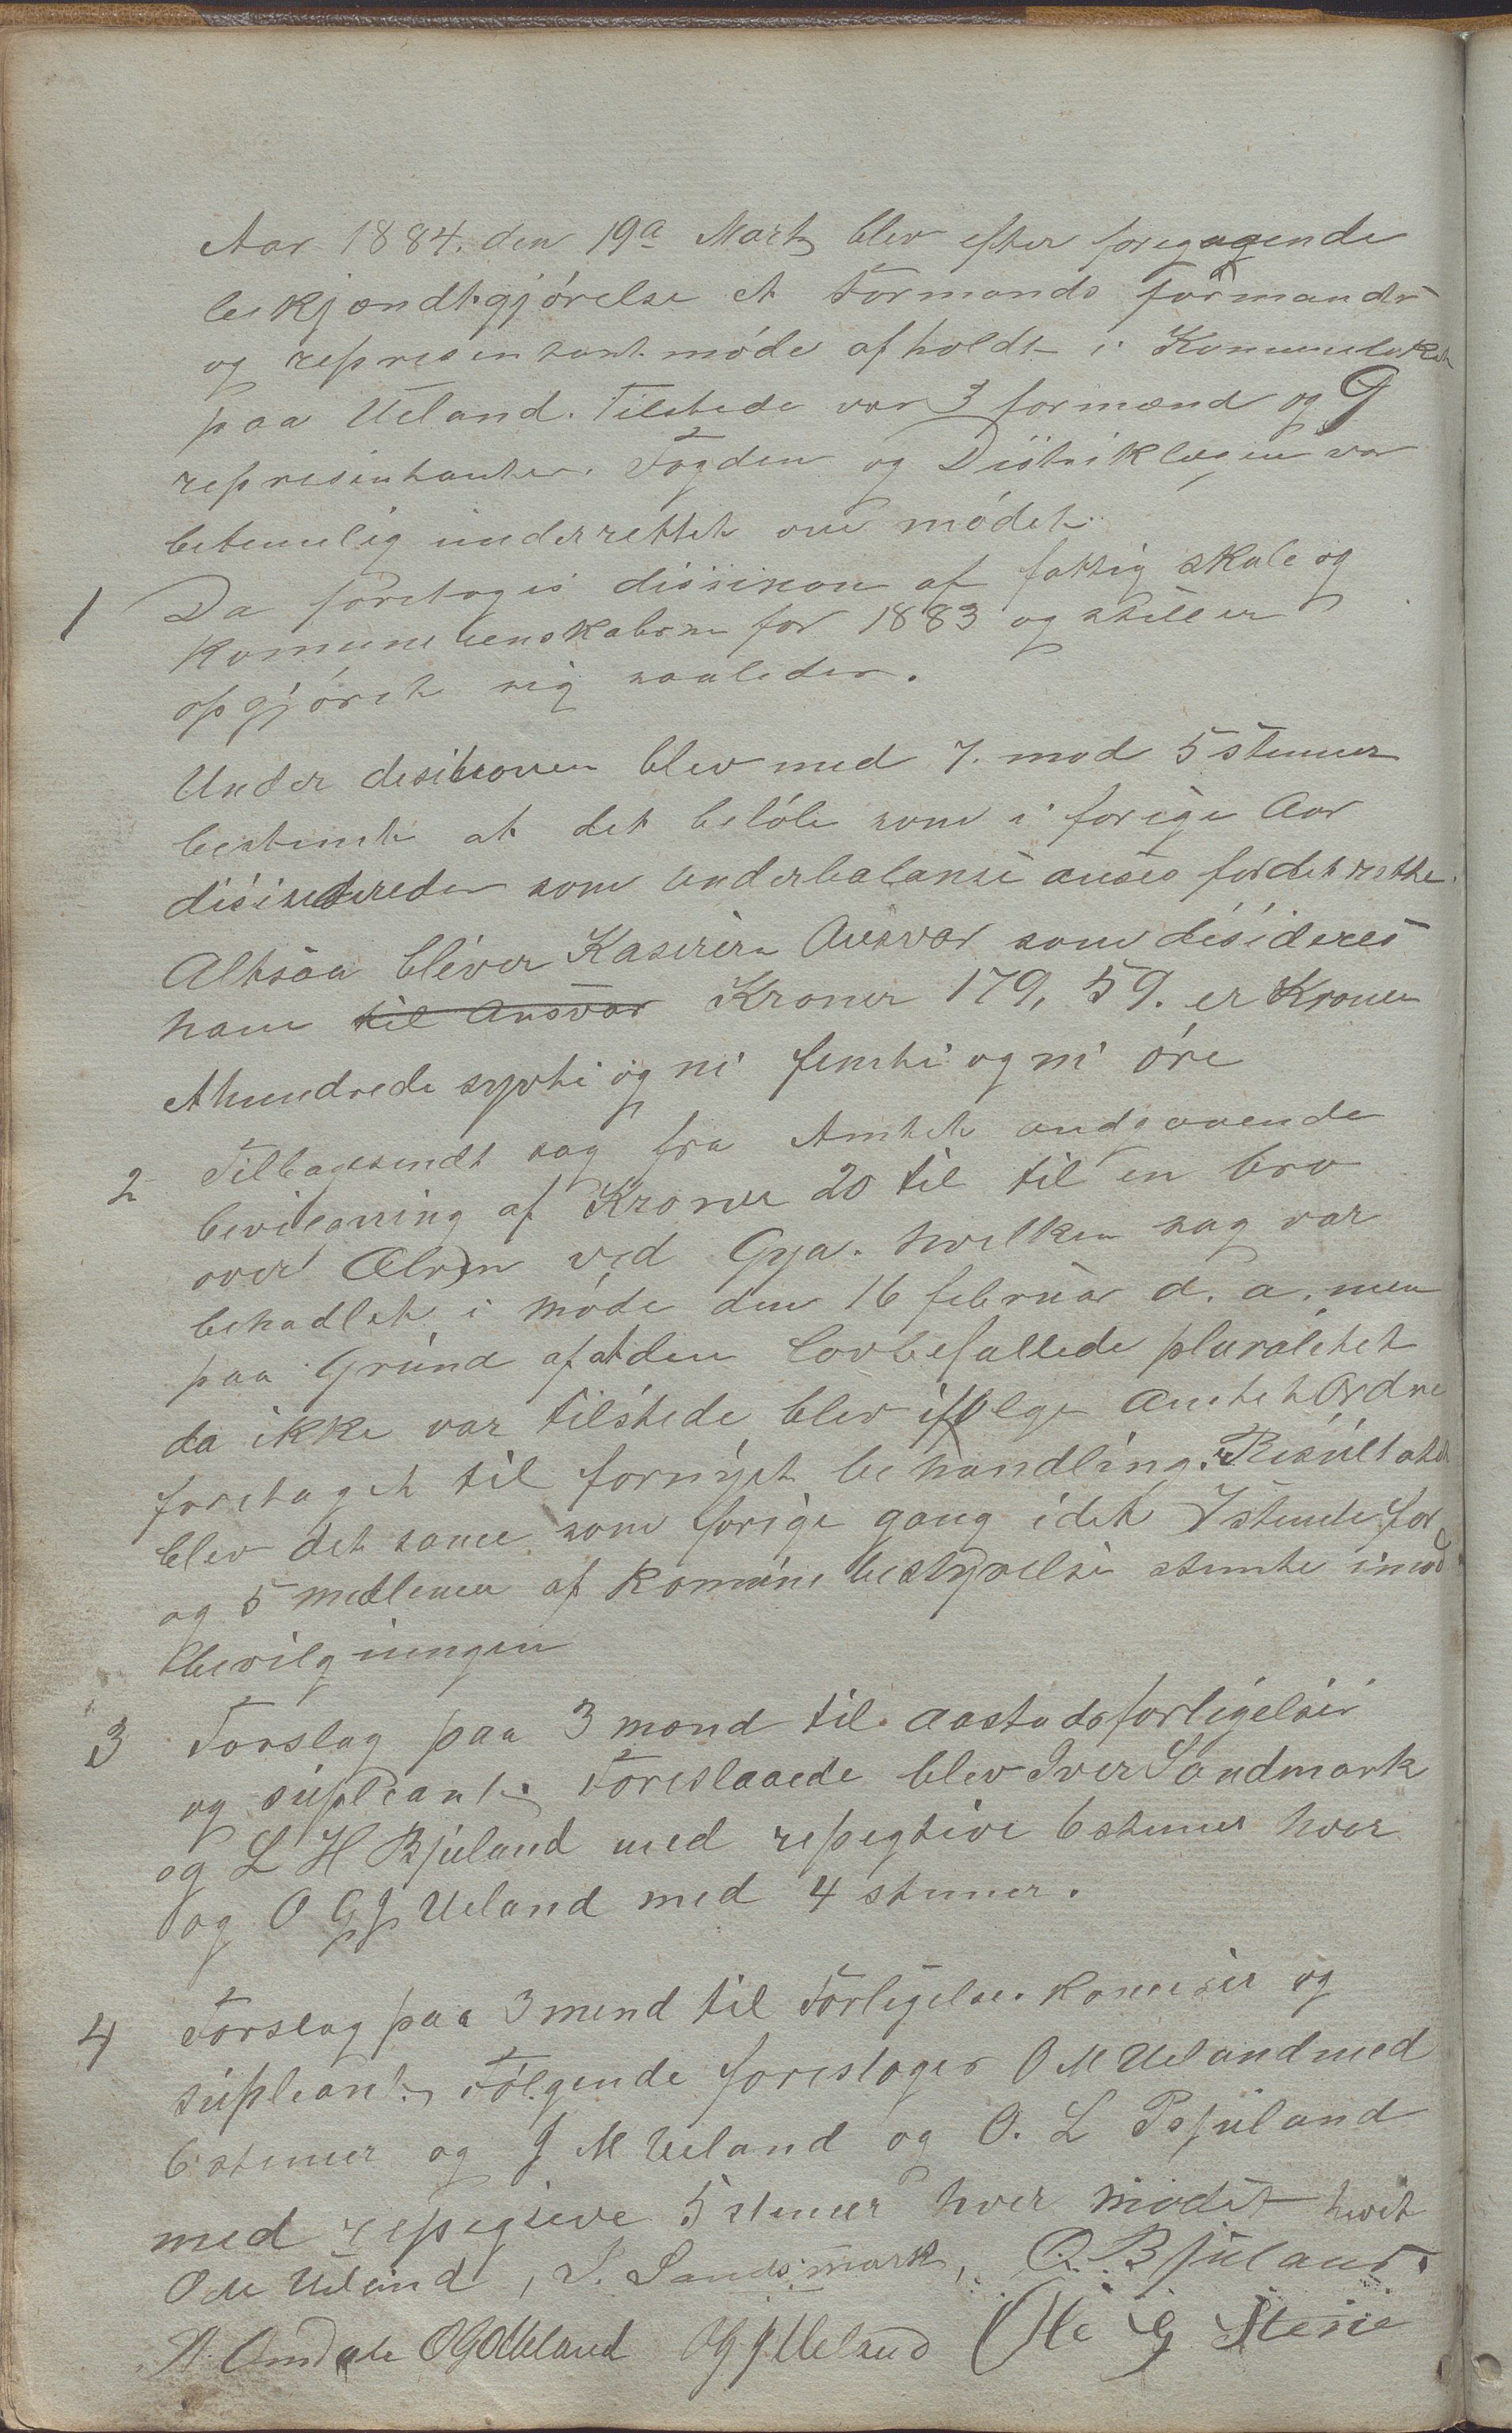 Aar 1884. den 19a Marts blev efter foregaagende
bekjændtgjórelse et Formands formands
og represinsant móde afholdt i Komunelokalet
paa Ueland. Tilstede var 3 formænd og 9
represintanter. Fogden og Distriklægen var
betimelig underrettet om módet.
1 Da foretoges disision af fattig skole og
komune renskaberne for 1883 og stiller
opgjóret sig saaledes.
Under desisionen blev med 7. mod 5 stemmer
bestemt at det belób som i forige Aar
disisideredes som underbalanse anses for det rette.
Altsaa bliver Kasereren Ansvar som disideres
ham til Ansvar Kroner 179, 59. er Kroner
Ahundrede sytti og ni femti og ni óre
2 Tilbagesendt sag fra Amtet andgaaende
bevilgning af Kroner 20 til til en bro
over Ælven ved Gya. hvilken sag var
behadlet i móde den 16 februar d. a. men
paa Grund af at den lovbefallede pluralitet
da ikke var tilstede blev ifólge Amtet Ordre
foretaget til fornyet behandling. Resultatet
blev det same som forige gang idet 7 stemte for
og 5 medlemer af Komune bestyrelse stemte imod
bevilgningen
3 Forslag paa 3 mænd til aastadsforligelser
og supleant. Foreslaaede blev Iver Sandmark
og L H Bjuland med repegtive 6 stemer hver
og O G J Ueland med 4 stemer.
4 Forslag paa 3 mend til Forligelses komisir og
supleant. Fólgende foreslages O M Ueland med
6 stemer og J M Ueland og O. L Bjuland
med repegtive 5 stemer hver módet hevet
O M Ueland, I. Sandsmark, O. Bjuland.
A. Omdale O G O Ueland O G J Ueland Ole G Stene